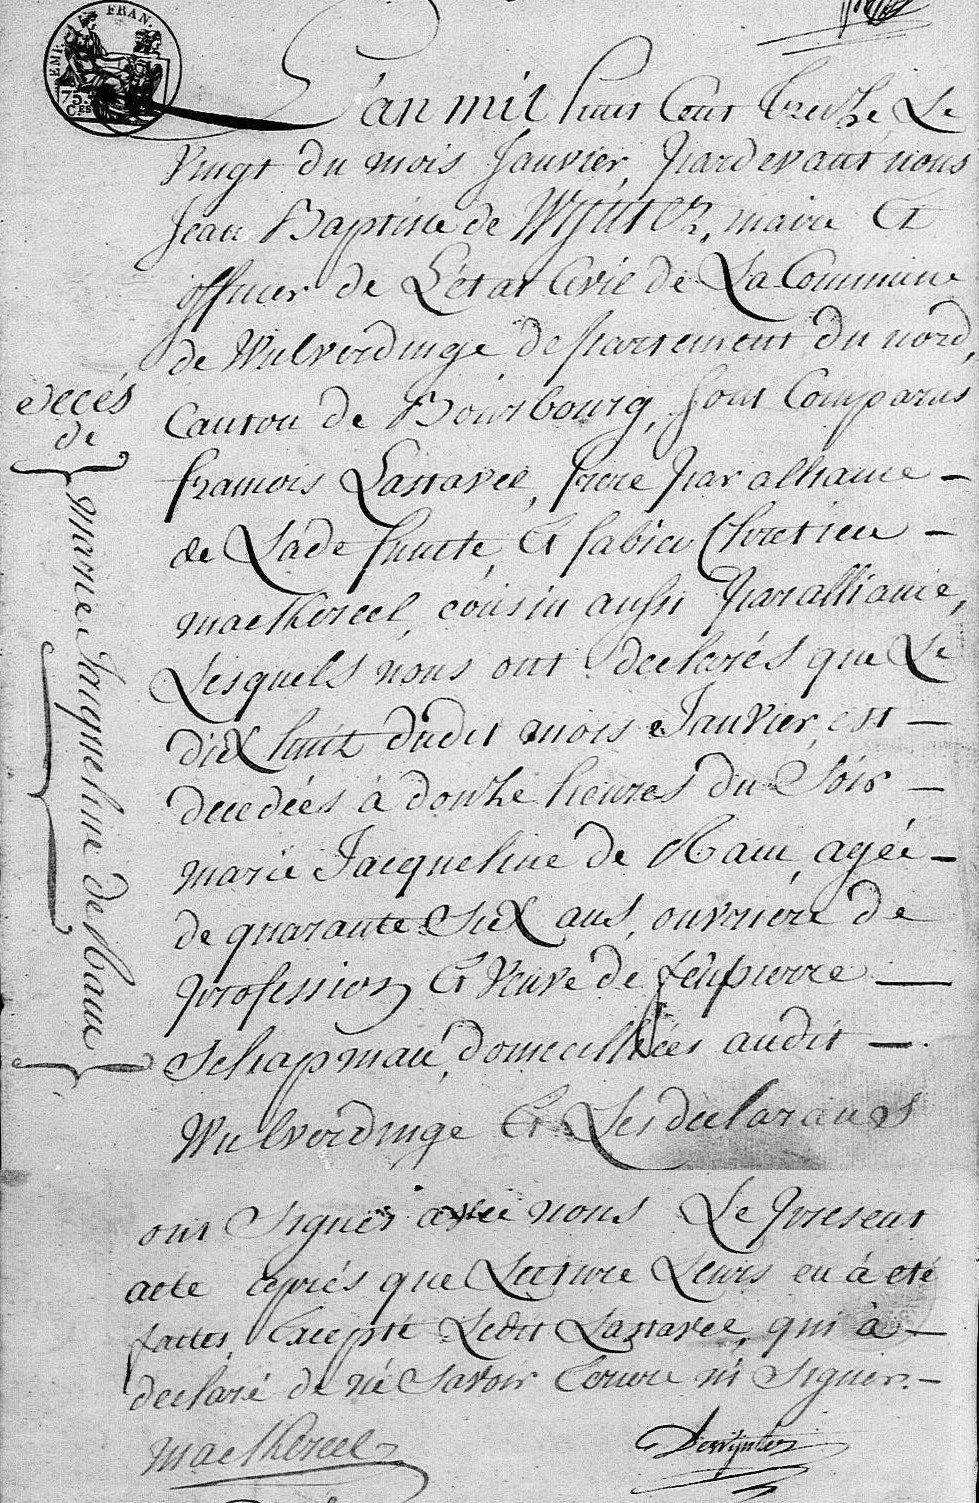 EMP. FRAN.
75.
C.es
L'an mil huit Cent treize Le
vingt du mois Janvier, pardevant nous
Jean Baptiste de Wynter, maire Et
officier de L'état Civil de La Commune
de Wulverdinge departement du nord,
Canton de Bourbourg, sont Comparus
francois Lastavel, frere par alliance -
de Lade funte, Et fabien Chretien -
maekereel, cousin aussi par alliance,
Lesquels nous ont declarés que Le
dix huit dudit mois Janvier, est -
decedées à douze heures du Soir -
marie Jacqueline de Haene, agée -
de quarante Six ans, ouvriere de
profession Et veuve de feu pierre —
Schapman, domeciliées audit —.
Wulverdinge Et Les declarans
ont Signer avec nous Le present
acte aprés que Lecture Leurs en à eté
faites, Excepté Ledit Lastavel, qui à -
declaré de né Savoir Ecrire ni Signer. -
maekereel
Dewynter
decés
de
marie Jacqueline de Haene